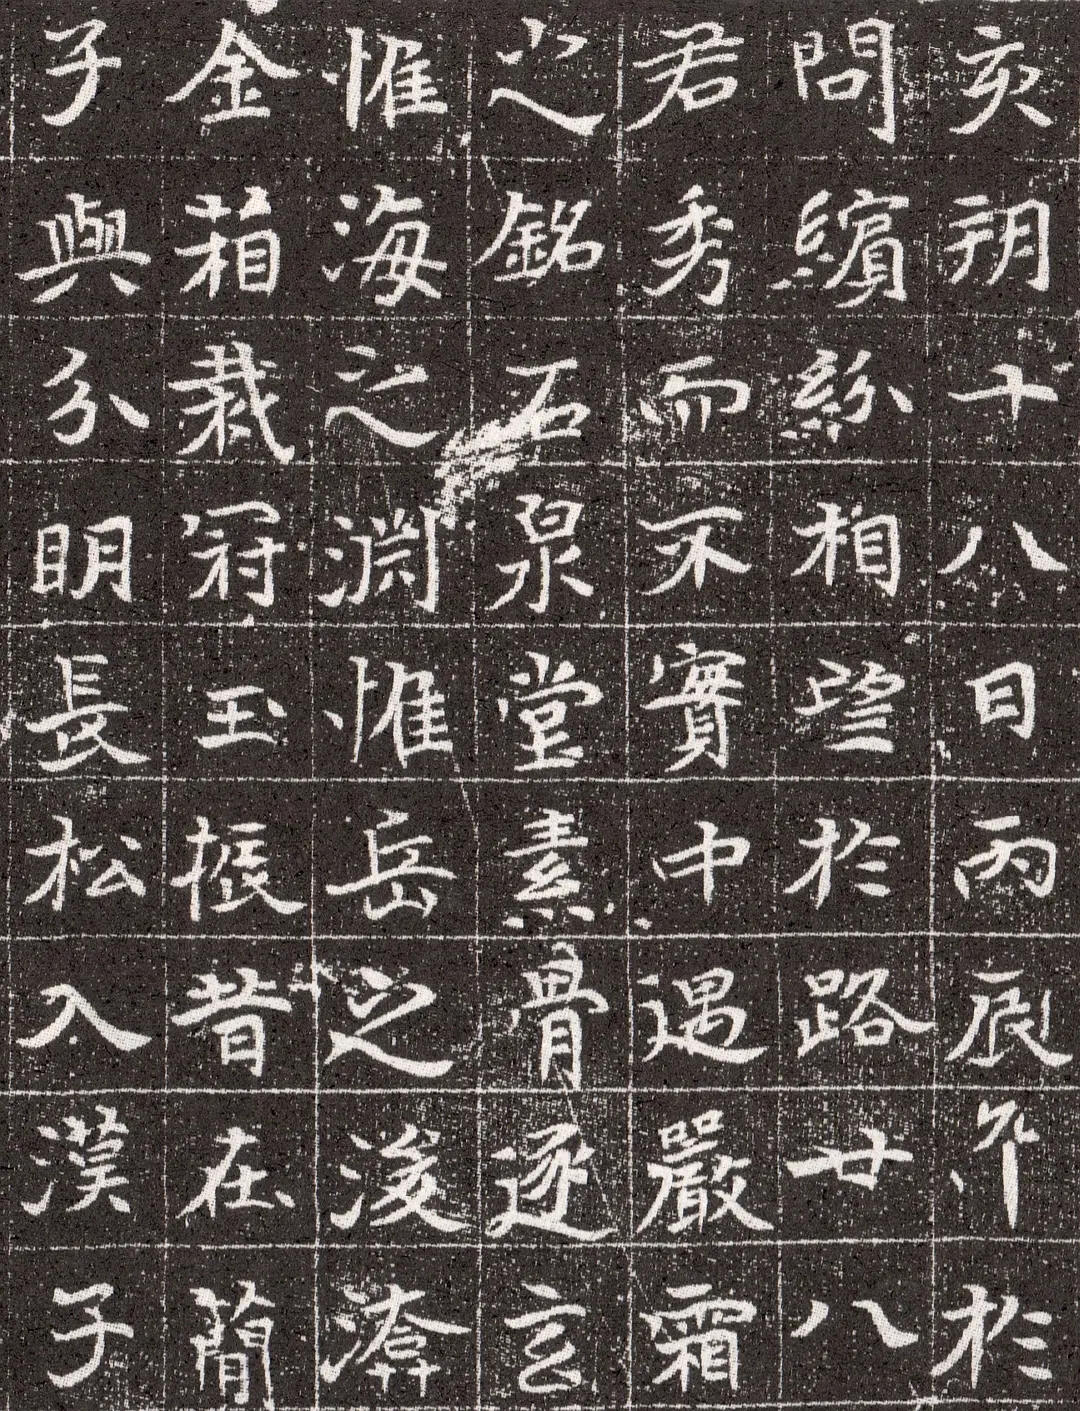 亥朔十八日丙辰卒於
問繽紛相望於路廿八
君秀而不實中遇嚴霜
之銘石泉堂素骨玄
惟海之淵惟岳之浚
金葙栽冠玉桭昔在簡
子與分明長松入漢子